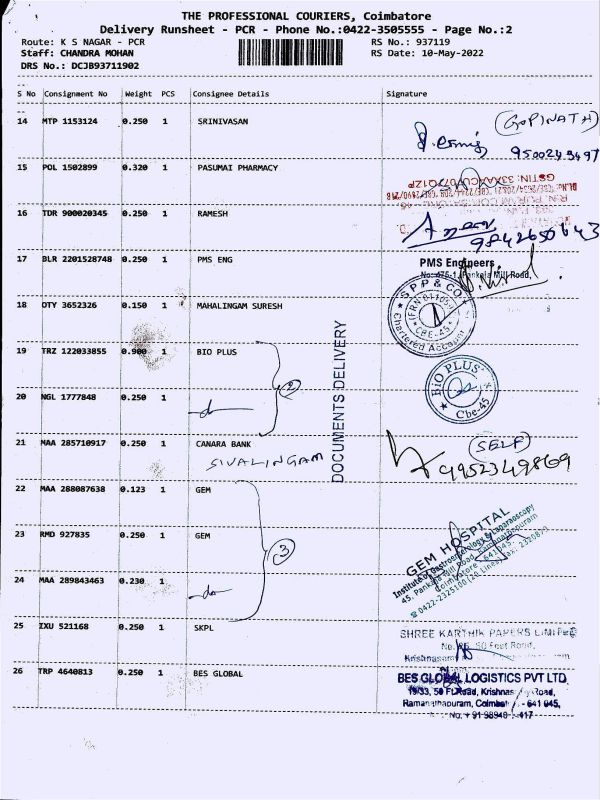 THE PROFESSIONAL COURIERS, Coimbatore
Delivery Runsheet - PCR - Phone No.:0422-3505555 - Page No.:2
Route: K S NAGAR - PCR RS No.: 937119
Staff: CHANDRA MOHAN RS Date: 10-May-2022
DRS No.: DCJB93711902
S No Consignment No Weight PCS Consignee Details Signature
14 MTP 1153124 0.250 1 SRINIVASAN
(GOPINATH)
15 POL 1502899 0.320 1 PASUMAI PHARMACY
16 TDR 900020345 0.250 1 RAMESH
9842650643
17 BLR 2201528748 0.250 1 PMS ENG
PMS Engineers
No: 475-1, Pankaja Mill Road,
18 OTY 3652326 0.150 1 MAHALINGAM SURESH
SPP & CO
Chartered Accountant
CBE-45
19 TRZ 122033855 0.900 1 BIO PLUS
2
BIO PLUS
Cbe-45
20 NGL 1777848 0.250 1
do
DOCUMENTS DELIVERY
21 MAA 285710917 0.250 1 CANARA BANK
SIVALINGAM
(SELF)
9952349869
22 MAA 288087638 0.123 1 GEM
23 RMD 927835 0.250 1 GEM
3
GEM HOSPITAL
Institute of Gastroenterology & Laparoscopy
45, Pankaja Mill Road, Ramanathapuram
Coimbatore - 641 045.
24 MAA 289843463 0.230 1
do
25 IXU 521168 0.250 1 SKPL
SHREE KARTHIK PAPERS LIMITED
50 Feet Road,
26 TRP 4640813 0.250 1 BES GLOBAL
BES GLOBAL LOGISTICS PVT LTD
19/33, 50 Ft Road, Krishnasamy Road,
Ramanathapuram, Coimbatore - 641 045,